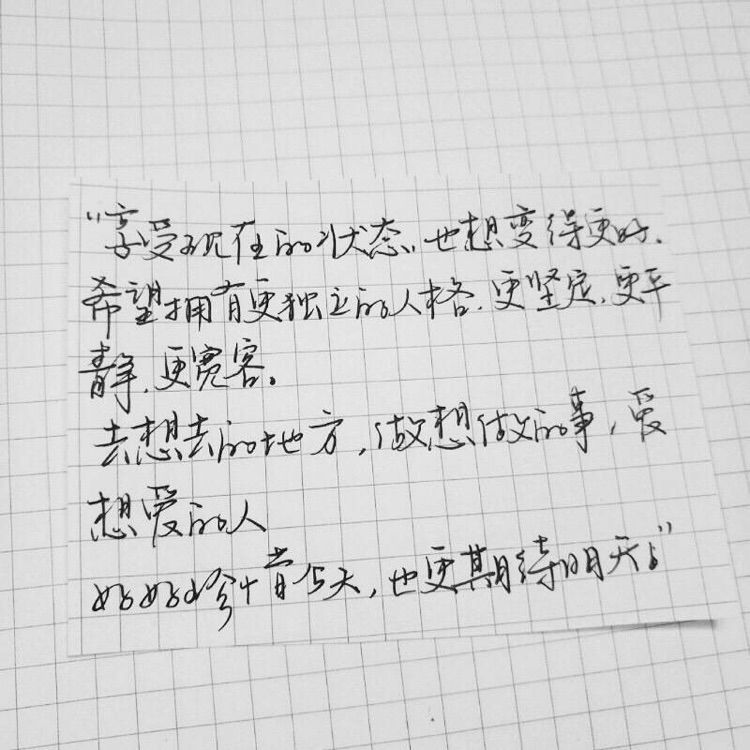 “享受现在的状态,也想变得更好.
希望拥有更独立的人格.更坚定.更平
静.更宽容。
去想去的地方,做想做的事,爱
想爱的人
好好珍惜今天,也更期待明天。”